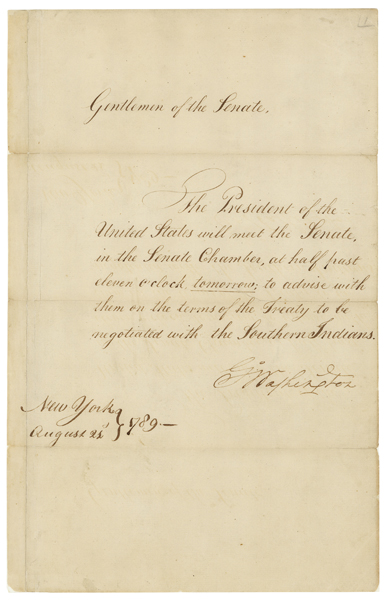 1
Gentlemen of the Senate,
The President of the
United States will meet the Senate,
in the Senate Chamber, at half past
eleven o'clock, tomorrow; to advise with
them on the terms of the Treaty to be
negotiated with the Southern Indians.
Go Washington
New York
August 21st } 1789—